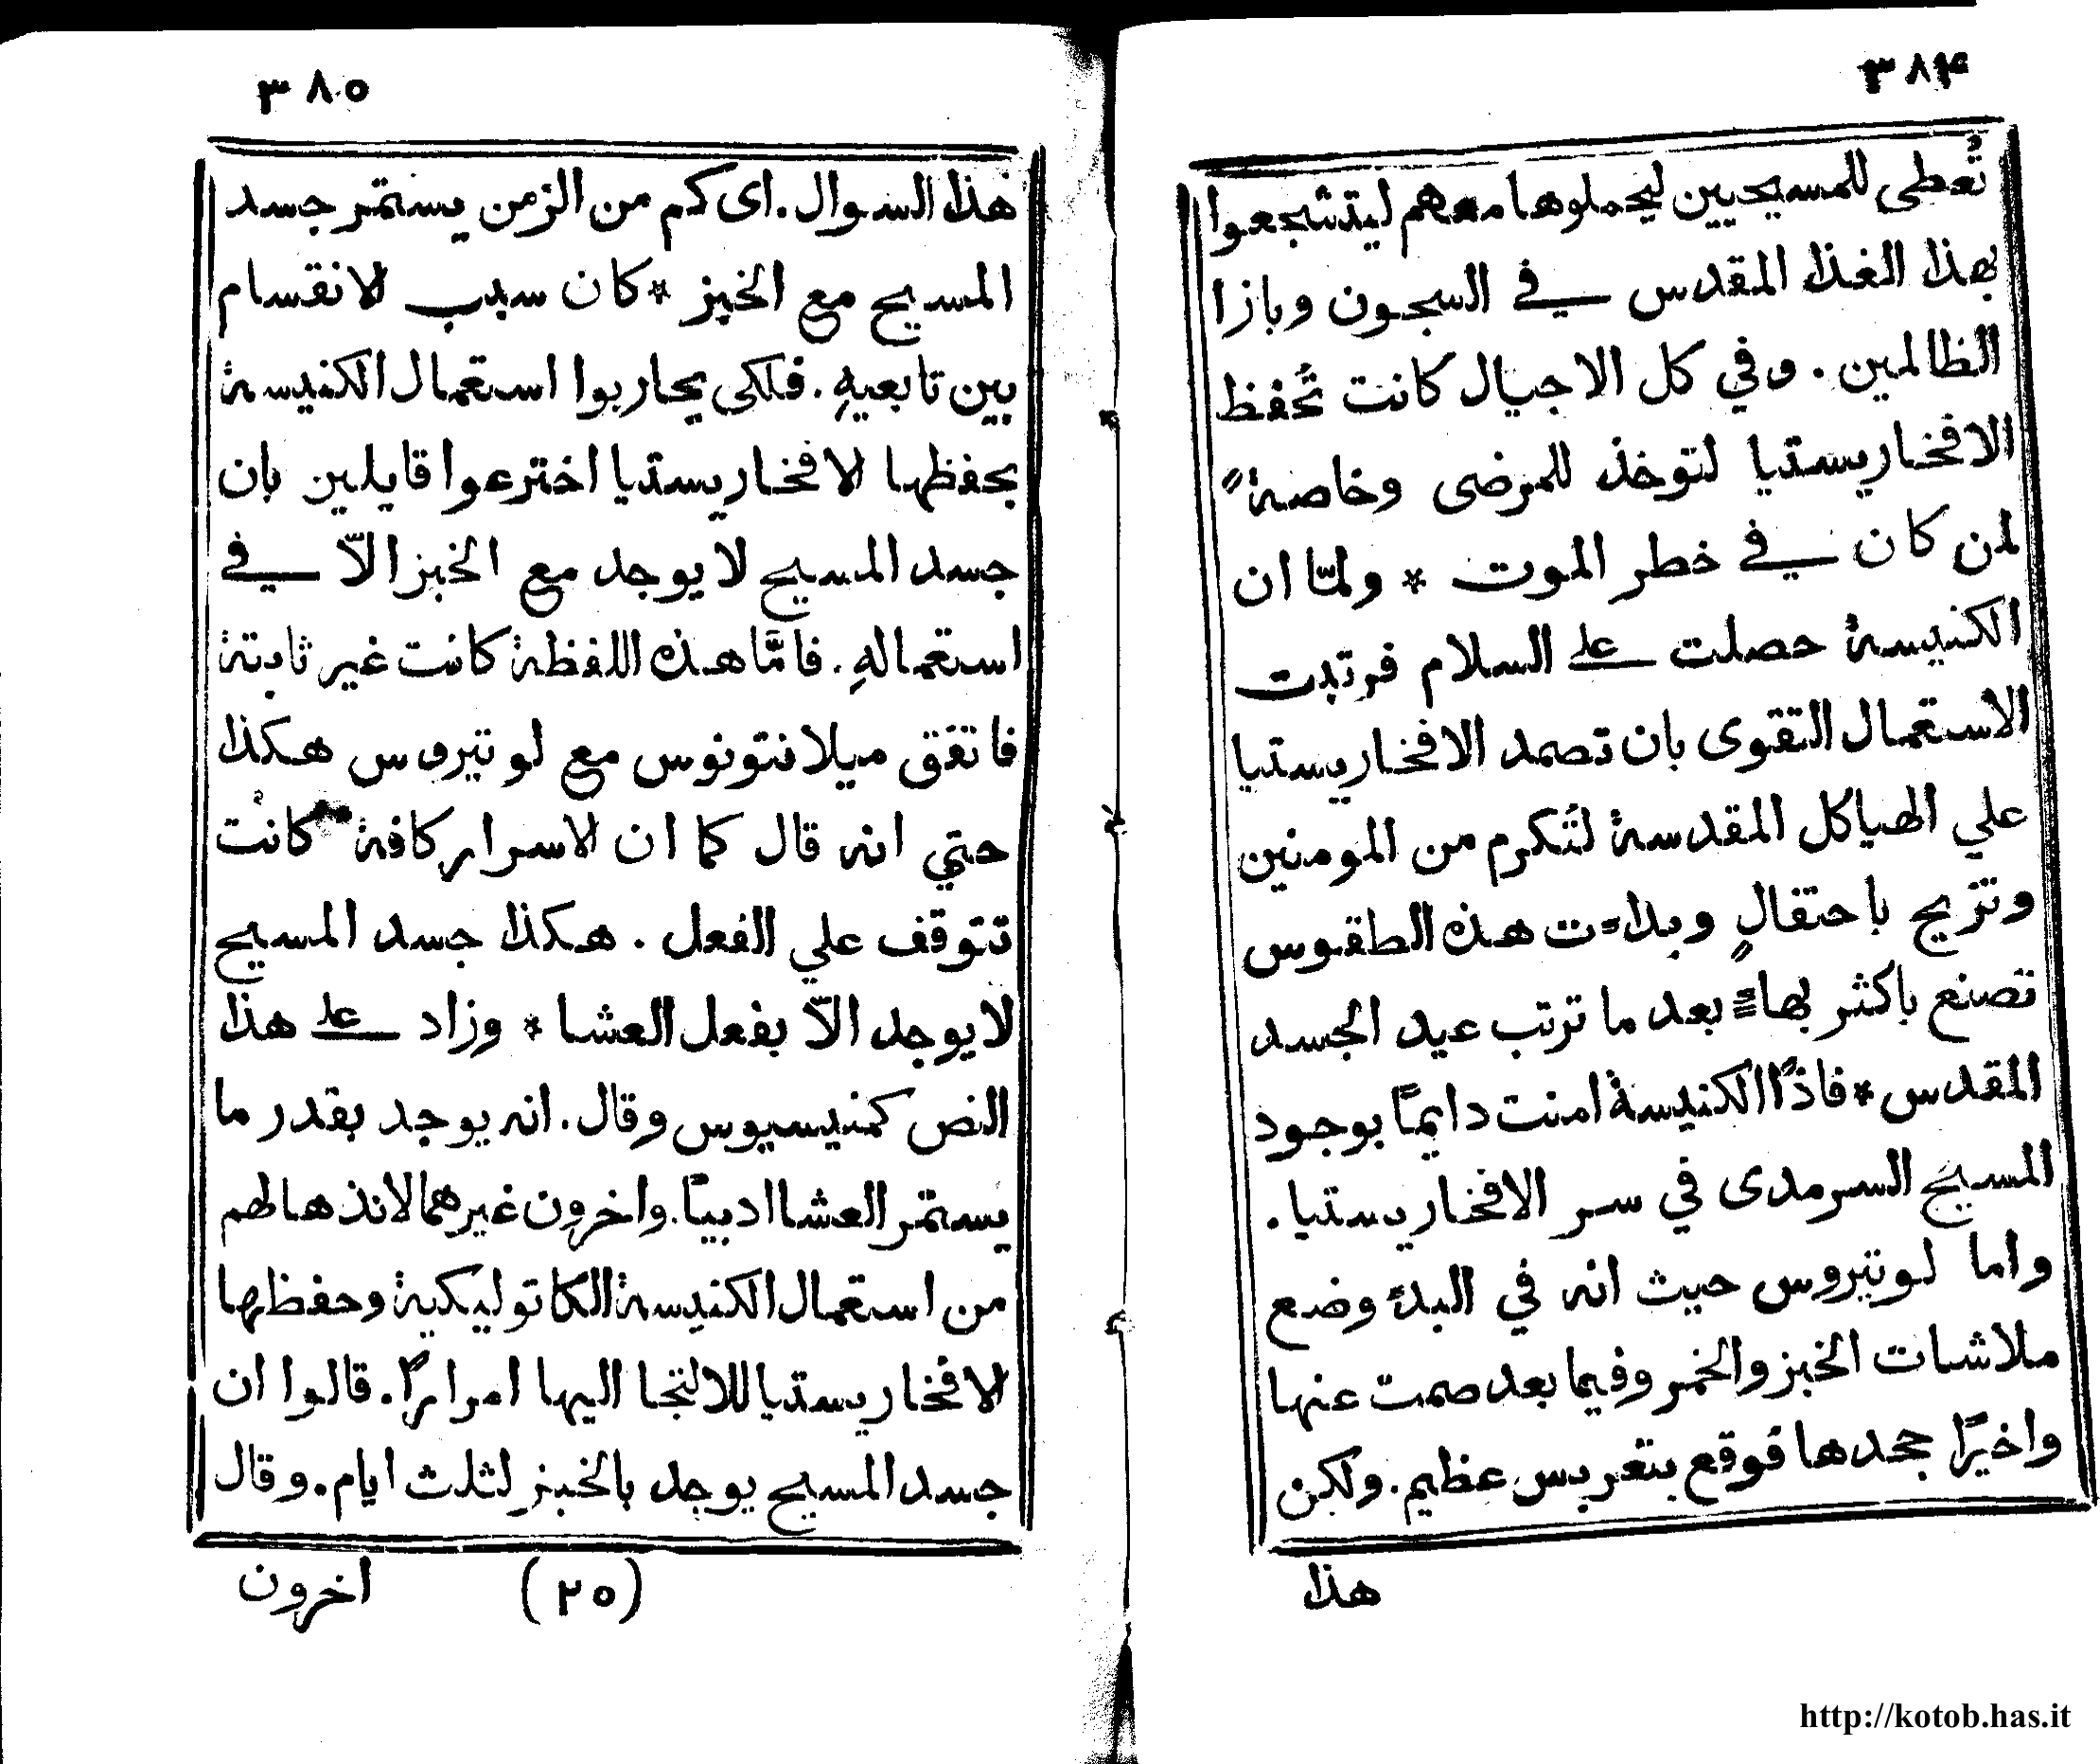 ٣٨۴
تُعطى للمسيحيين ليحملوها معهم ليتشجعوا
بهذا الغذا المقدس في السجون وبازا
الظالمين. وفي كل الاجيال كانت تُحفظ
الافخاريستيا لتوخذ للمرضى وخاصةً
لمن كان في خطر الموت * ولمّا ان
الكنيسة حصلت على السلام فرتبت
الاستعمال التقوى بان تصمد الافخاريستيا
علي الهياكل المقدسة لتُكرم من المومنين
وتزيح باحتفالٍ وبداءت هذه الطقوس
تصنع باكثر بهاءً بعد ما ترتب عيد الجسد
المقدس * فاذًا الكنيسة امنت دايمًا بوجود
المسيح السرمدى في سر الافخاريستيا.
واما لوتيروس حيث انه في البدء وضع
ملاشات الخبز والخمر وفيما بعد صمت عنها
واخيرًا جحدها فوقع بتعريس عظيم. ولكن
هذا
٣٨٥
هذا السوال. اى كم من الزمن يستمر جسد
المسيح مع الخبز * كان سبب لانقسام
بين تابعيهِ. فلكى يحاربوا استعمال الكنيسة
بحفظها لافخاريستيا اخترعوا قايلين بان
جسد المسيح لا يوجد مع الخبز الاّ في
استعمالهِ. فامَّا هذه اللفظة كانت غير ثابتة
فاتفق ميلانتونوس مع لوتيروس هكذا
حتي انه قال كما ان لاسرار كافة كانت
تتوقف علي الفعل. هكذا جسد المسيح
لا يوجد الاّ بفعل العشا * وزاد على هذا
النص كمنيسيوس وقال. انه يوجد بقدر ما
يستمر العشا ادبيًا. واخرون غيرهما لاندهالهم
من استعمال الكنيسة الكاتوليكية وحفظها
لافخاريستيا للالتجا اليها امرارًا. قالوا ان
جسد المسيح يوجد بالخبز لثلث ايام. وقال
(٢٥)
اخرون
http://kotob.has.it